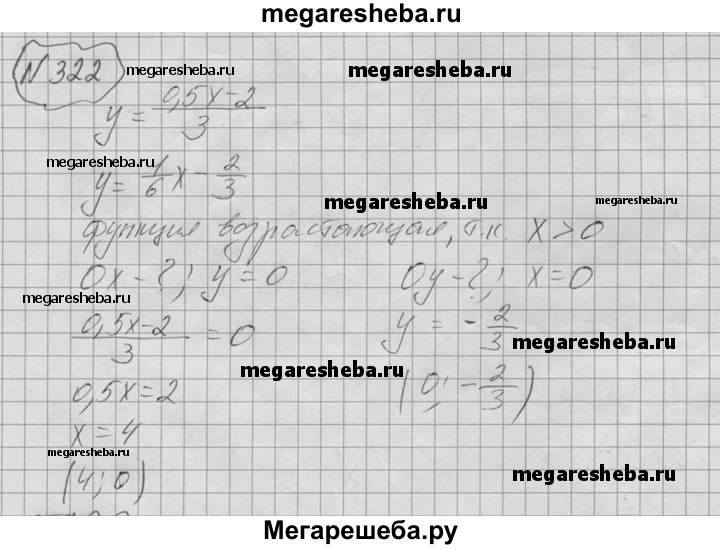 megaresheba.ru
N 322
megaresheba.ru
megaresheba.ru
y = (0,5x-2)/3
megaresheba.ru
y = 1/6 x - 2/3
megaresheba.ru
megaresheba.ru
функция возрастающая, т.к. x > 0
0x - ?; y = 0
0y - ?; x = 0
megaresheba.ru
(0,5x-2)/3 = 0
y = - 2/3
megaresheba.ru
megaresheba.ru
0,5x = 2
(0; - 2/3)
x = 4
megaresheba.ru
(4; 0)
megaresheba.ru
Мегарешеба.ру